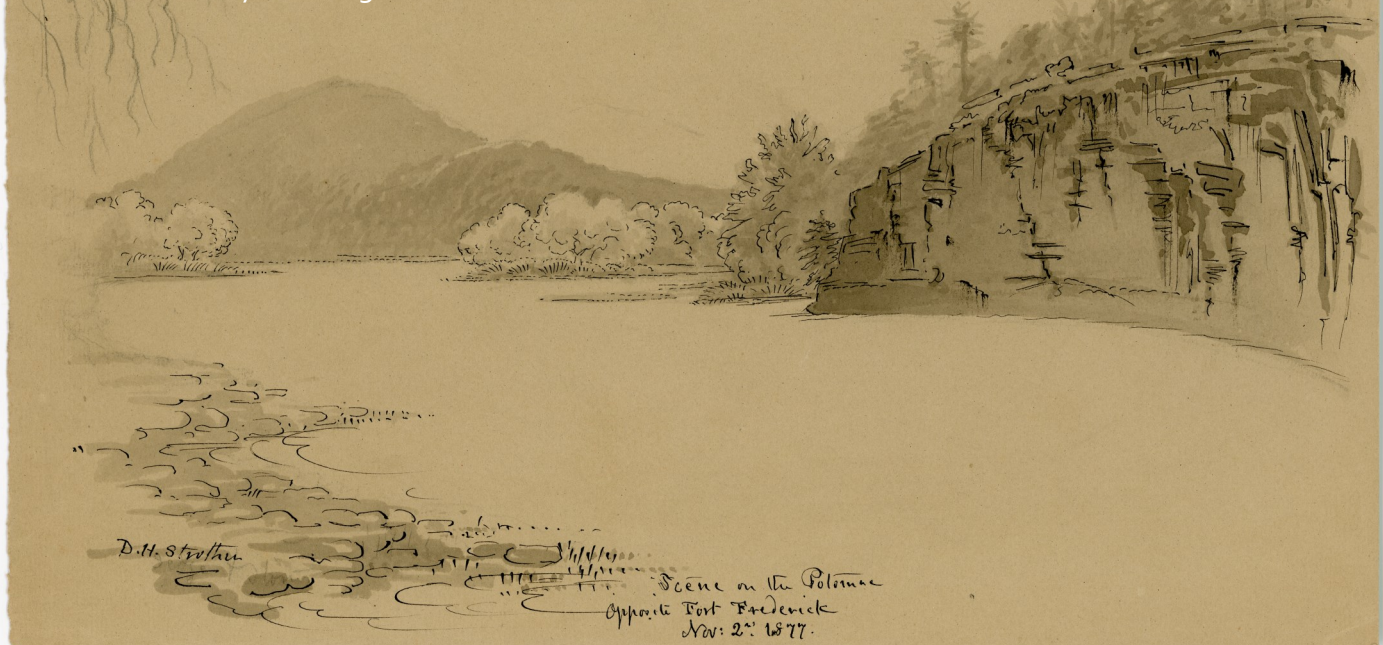 D.H. Strother
Scene on the Potomac
Opposite Fort Frederick
Nov: 2nd 1877.